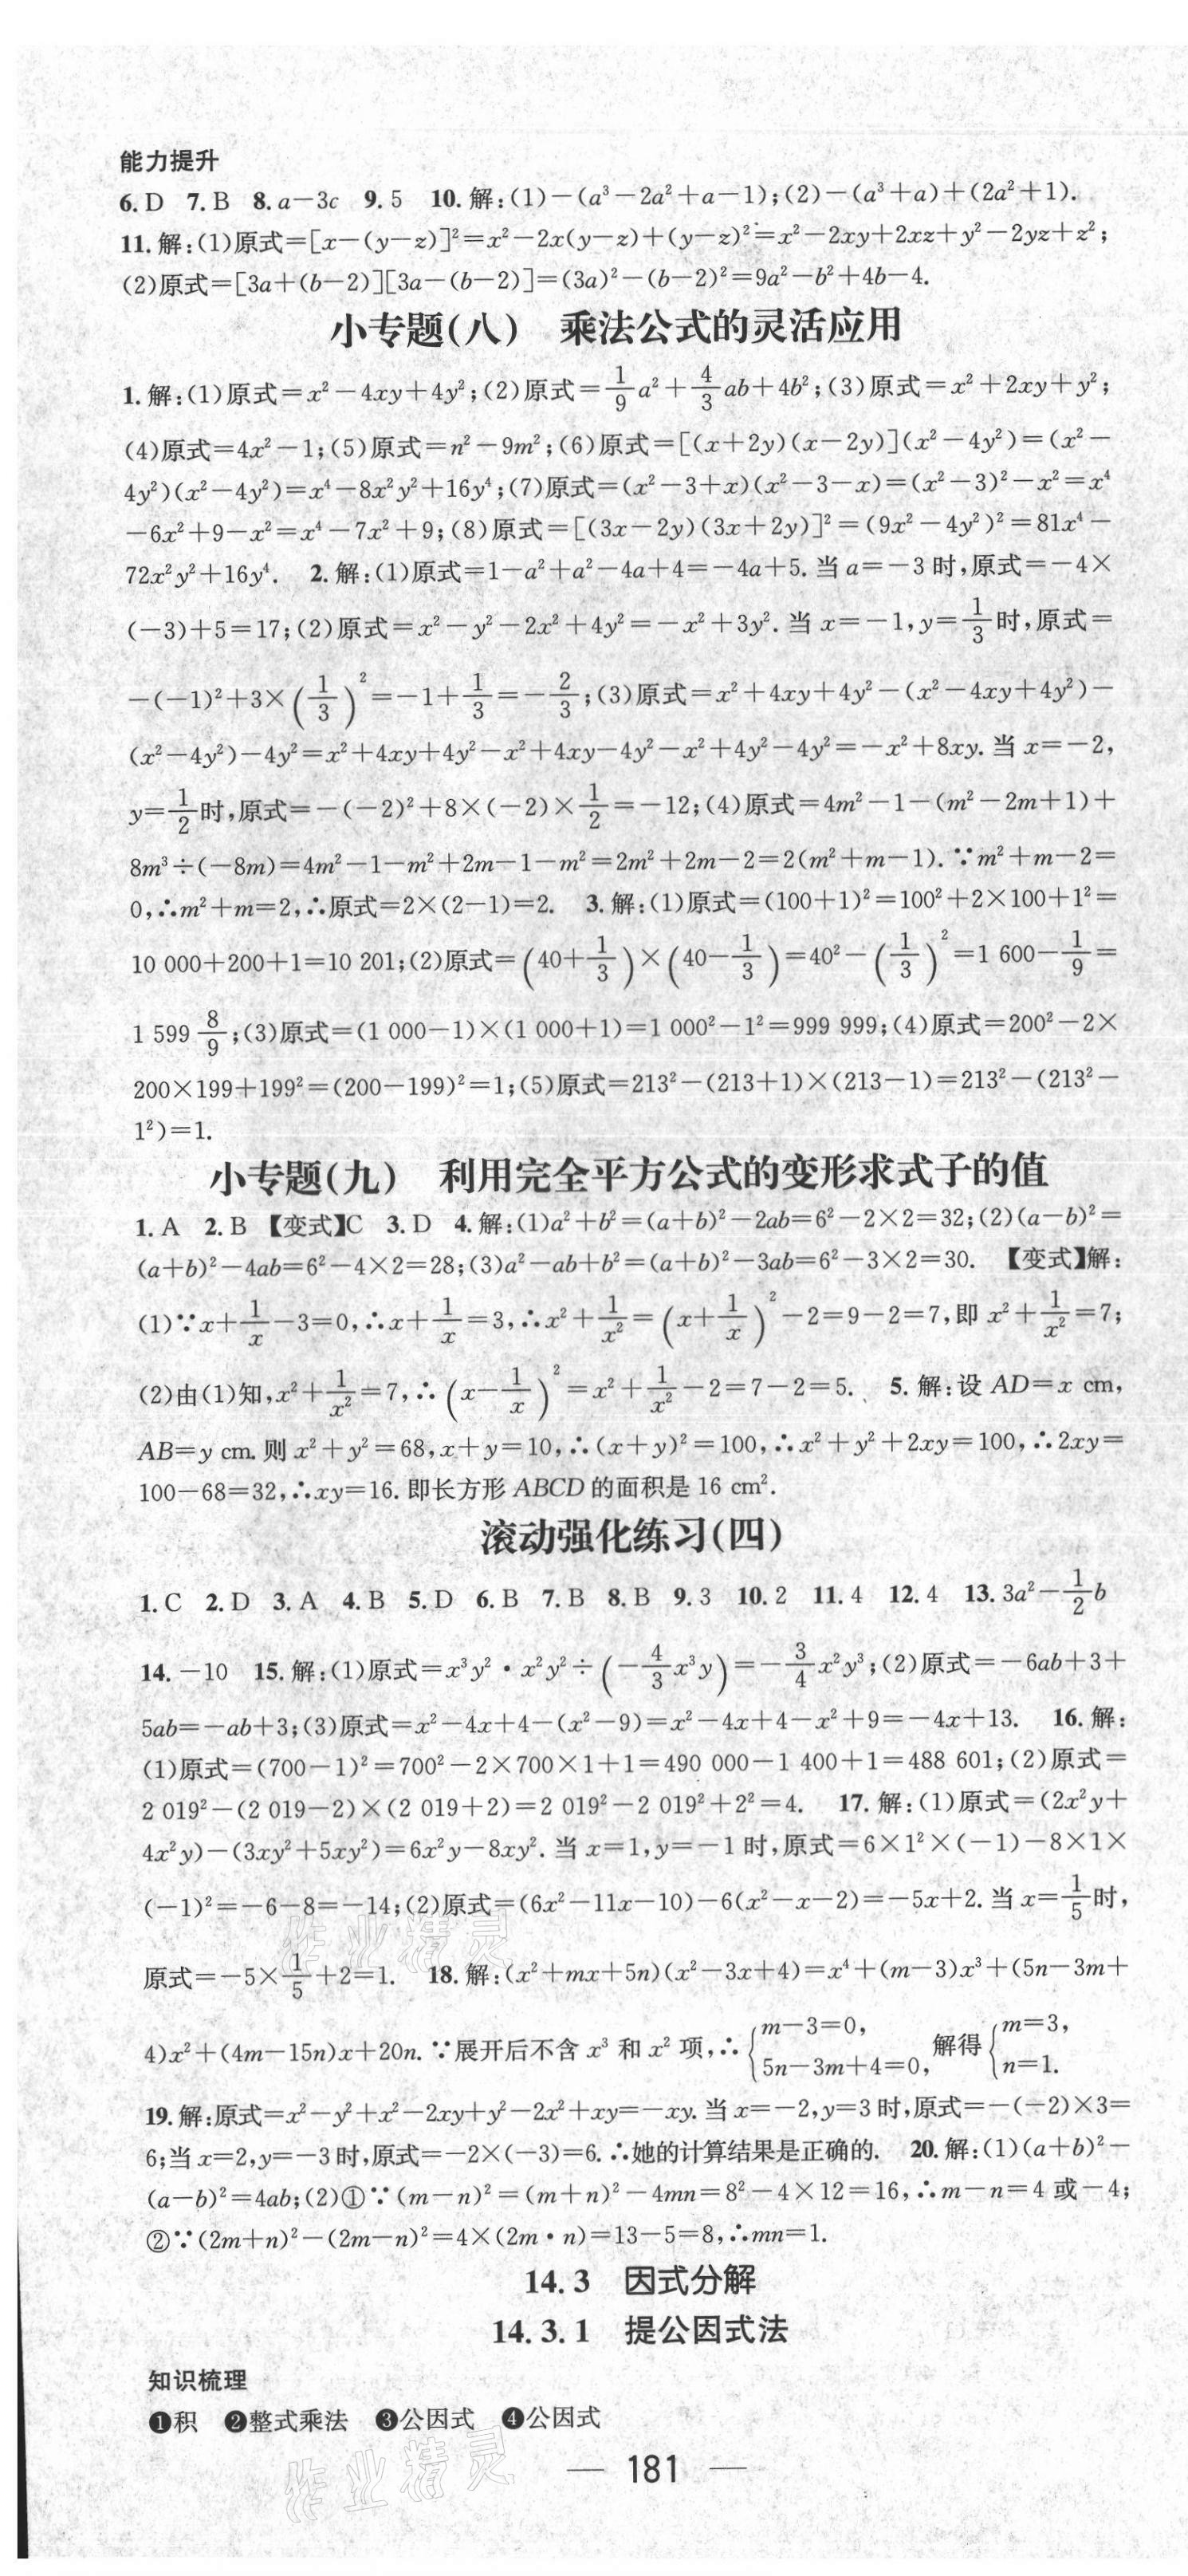 能力提升
6. D 7. B 8. a-3c 9. 5 10. 解:(1)-(a³-2a²+a-1);(2)-(a³+a)+(2a²+1).
11. 解:(1)原式=[x-(y-z)]²=x²-2x(y-z)+(y-z)²=x²-2xy+2xz+y²-2yz+z²;
(2)原式=[3a+(b-2)][3a-(b-2)]=(3a)²-(b-2)²=9a²-b²+4b-4.
小专题(八) 乘法公式的灵活应用
1. 解:(1)原式=x²-4xy+4y²;(2)原式=1/9a²+4/3ab+4b²;(3)原式=x²+2xy+y²;
(4)原式=4x²-1;(5)原式=n²-9m²;(6)原式=[(x+2y)(x-2y)](x²-4y²)=(x²-
4y²)(x²-4y²)=x⁴-8x²y²+16y⁴;(7)原式=(x²-3+x)(x²-3-x)=(x²-3)²-x²=x⁴
-6x²+9-x²=x⁴-7x²+9;(8)原式=[(3x-2y)(3x+2y)]²=(9x²-4y²)²=81x⁴-
72x²y²+16y⁴. 2. 解:(1)原式=1-a²+a²-4a+4=-4a+5. 当a=-3时,原式=-4×
(-3)+5=17;(2)原式=x²-y²-2x²+4y²=-x²+3y². 当x=-1,y=1/3时,原式=
-(-1)²+3×(1/3)²=-1+1/3=-2/3;(3)原式=x²+4xy+4y²-(x²-4xy+4y²)-
(x²-4y²)-4y²=x²+4xy+4y²-x²+4xy-4y²-x²+4y²-4y²=-x²+8xy. 当x=-2,
y=1/2时,原式=-(-2)²+8×(-2)×1/2=-12;(4)原式=4m²-1-(m²-2m+1)+
8m³÷(-8m)=4m²-1-m²+2m-1-m²=2m²+2m-2=2(m²+m-1). ∵m²+m-2=
0,∴m²+m=2,∴原式=2×(2-1)=2. 3. 解:(1)原式=(100+1)²=100²+2×100+1²=
10 000+200+1=10 201;(2)原式=(40+1/3)×(40-1/3)=40²-(1/3)²=1 600-1/9=
1 599 8/9;(3)原式=(1 000-1)×(1 000+1)=1 000²-1²=999 999;(4)原式=200²-2×
200×199+199²=(200-199)²=1;(5)原式=213²-(213+1)×(213-1)=213²-(213²-
1²)=1.
小专题(九) 利用完全平方公式的变形求式子的值
1. A 2. B 【变式】C 3. D 4. 解:(1)a²+b²=(a+b)²-2ab=6²-2×2=32;(2)(a-b)²=
(a+b)²-4ab=6²-4×2=28;(3)a²-ab+b²=(a+b)²-3ab=6²-3×2=30. 【变式】解:
(1)∵x+1/x-3=0,∴x+1/x=3,∴x²+1/x²=(x+1/x)²-2=9-2=7,即x²+1/x²=7;
(2)由(1)知,x²+1/x²=7,∴(x-1/x)²=x²+1/x²-2=7-2=5. 5. 解:设AD=x cm,
AB=y cm. 则x²+y²=68,x+y=10,∴(x+y)²=100,∴x²+y²+2xy=100,∴2xy=
100-68=32,∴xy=16. 即长方形ABCD的面积是16 cm².
滚动强化练习(四)
1. C 2. D 3. A 4. B 5. D 6. B 7. B 8. B 9. 3 10. 2 11. 4 12. 4 13. 3a²-1/2b
14. -10 15. 解:(1)原式=x³y²·x²y²÷(-4/3x³y)=-3/4x²y³;(2)原式=-6ab+3+
5ab=-ab+3;(3)原式=x²-4x+4-(x²-9)=x²-4x+4-x²+9=-4x+13. 16. 解:
(1)原式=(700-1)²=700²-2×700×1+1=490 000-1 400+1=488 601;(2)原式=
2 019²-(2 019-2)×(2 019+2)=2 019²-2 019²+2²=4. 17. 解:(1)原式=(2x²y+
4x²y)-(3xy²+5xy²)=6x²y-8xy². 当x=1,y=-1时,原式=6×1²×(-1)-8×1×
(-1)²=-6-8=-14;(2)原式=(6x²-11x-10)-6(x²-x-2)=-5x+2. 当x=1/5时,
原式=-5×1/5+2=1. 18. 解:(x²+mx+5n)(x²-3x+4)=x⁴+(m-3)x³+(5n-3m+
4)x²+(4m-15n)x+20n. ∵展开后不含x³和x²项,∴{m-3=0, 5n-3m+4=0, 解得{m=3, n=1.
19. 解:原式=x²-y²+x²-2xy+y²-2x²+xy=-xy. 当x=-2,y=3时,原式=-(-2)×3=
6;当x=2,y=-3时,原式=-2×(-3)=6. ∴她的计算结果是正确的. 20. 解:(1)(a+b)²-
(a-b)²=4ab;(2)①∵(m-n)²=(m+n)²-4mn=8²-4×12=16,∴m-n=4或-4;
②∵(2m+n)²-(2m-n)²=4×(2m·n)=13-5=8,∴mn=1.
14.3 因式分解
14.3.1 提公因式法
知识梳理
❶积 ❷整式乘法 ❸公因式 ❹公因式
作业精灵
作业精灵
— 181 —